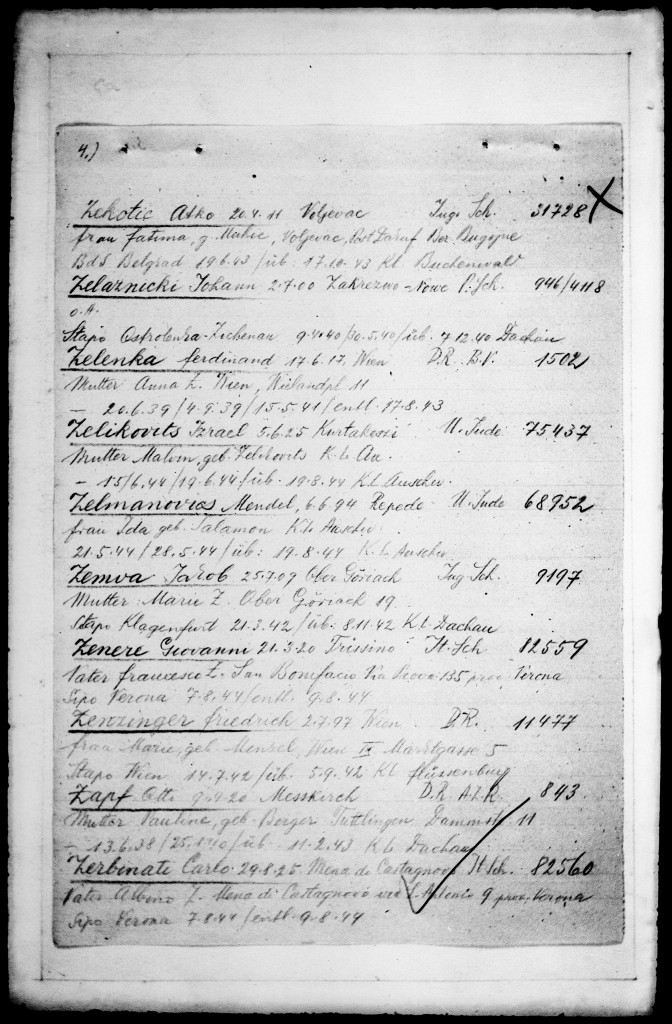 4.)
Zekotic Asko 20.4.11 Voljevac Jug. Sch. 31728 X
frau Fatima, g. Mahic, Voljevac, Post Ber. Bugojne
BdS Belgrad 19.6.43 / üb: 17.10.43 KL Buchenwald
Zelaznicki Johann 2.7.00 Zakrezwo-Nowe P. Sch. 946/4118
o.A.
Stapo Ostrolenka-Zichenau 9.4.40/30.5.40/üb. 7.12.40 Dachau
Zelenka ferdinand 17.6.17, Wien D.R. B.V. 1502
Mutter Anna Z. Wien, Wielandpl 11
- 20.6.39/4.9.39/15.5.41/entl. 17.8.43
Zelikovits Izrael 5.6.25 Kurtakeszi U. Jude 75437
Mutter Malvin, geb. Zelikovits K.L. Au.
- 15/6.44/19.6.44/üb. 19.8.44 K.L. Auschw.
Zelmanovics Mendel, 6.6.94 Repede U. Jude 68952
frau Ida geb. Salamon K.L. Auschw
21.5.44/28.5.44/üb: 19.8.44 K.L. Auschw.
Zemva Jakob 25.7.09 Ober Göriach Jug. Sch. 9197
Mutter: Marie Z. Ober Göriach 19
Stapo Klagenfurt 21.3.42/üb: 8.11.42 KL Dachau
Zenere Giovanni 21.3.20 Trissino It. Sch 82559
Vater francesco Z. San Bonifacio Via 135 prov. Verona
Sipo Verona 7.8.44/entl. 9.8.44
Zenzinger friedrich 2.7.97 Wien D.R. 11477
frau Marie, geb. Menzel, Wien IX Marktgasse 5
Stapo Wien 14.7.42/üb. 5.9.42 KL flüssenburg
Zapf Otti 9.9.20 Messkirch D.R. A.Z.R. 843
Mutter Pauline, geb. Berger Tuttlingen Dammstr. 11
- 13.6.38/25.1.40/üb 11.2.43 KL Dachau
Zerbinati Carlo 29.8.25 Mena di Castagnovo It. Sch. 82560
Vater Albino Z. Mena di Castagnovo via S. Antonio 9 prov. Verona
Sipo Verona 7.8.44/entl. 9.8.44